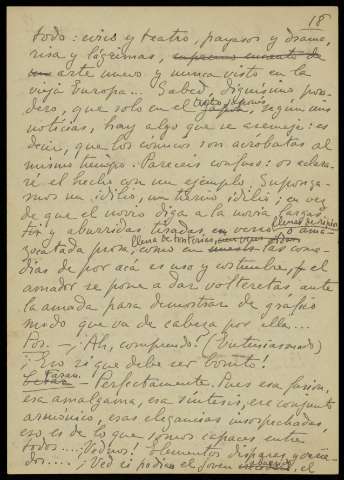 18
todo: circo y teatro, payasos y drama,
risa y lágrimas, supremo encanto de
un arte nuevo y nunca visto en la
vieja Europa... Sabed, dignísimo poderoso,
dero, que solo en el Japón, según mis
noticias, hay algo que se asemeje: es
decir, que los cómicos son acróbatas al
mismo tiempo. Parecéis confuso: os aclararé
ré el hecho con un ejemplo. Suponga-
mos un idilio, un tierno idilio; en vez
de que el novio diga a la novia largas
llenas de ripio
y aburridas tiradas, en verso, o ama-
llena de tonterías,
zacotada prosa, como en las come-
dias de por acá es uso y costumbre, el
amador se pone a dar volteretas ante
la amada para demostrar de gráfico
modo que va de cabeza por ella...
Pos. — ¡Ah, comprendo! (Entusiasmado)
¡Eso sí que debe ser bonito!
Faran.
— Perfectamente. Pues esa fusión,
esa amalgama, esa síntesis, ese conjunto
armónico, esas elegancias insospechadas,
eso es de lo que somos capaces entre
todos.... ¡Vednos! Elementos dispares y
dos.... ¡Ved si podían el joven el